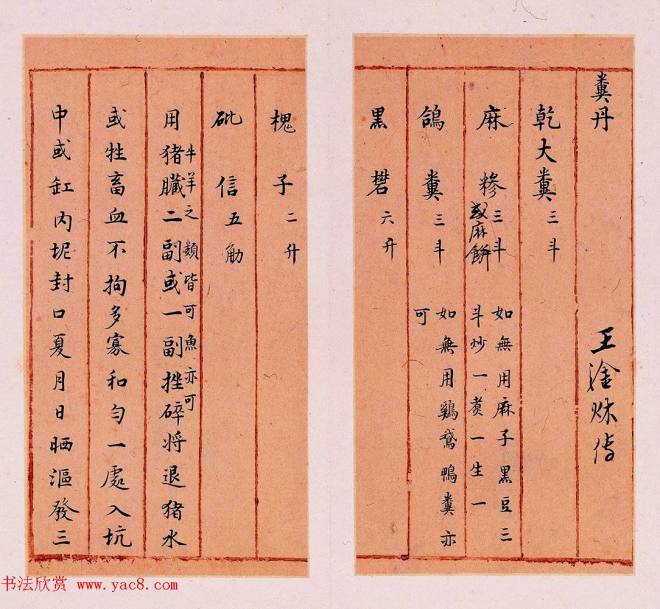 糞丹 王淦秌傳
乾大糞三斗
麻糝三斗或麻餅 如無用麻子黑豆三斗炒一煑一生一
鴿糞三斗 如無用鷄鵞鴨糞亦可
黑礬六升
槐子二升
砒信五觔
用猪臟二副或一副挫碎將退猪水
牛羊之類皆可魚亦可
或牲畜血不拘多寡和匀一處入坑
中或缸內坭封口夏月日晒漚發三
书法欣赏 www.yac8.com